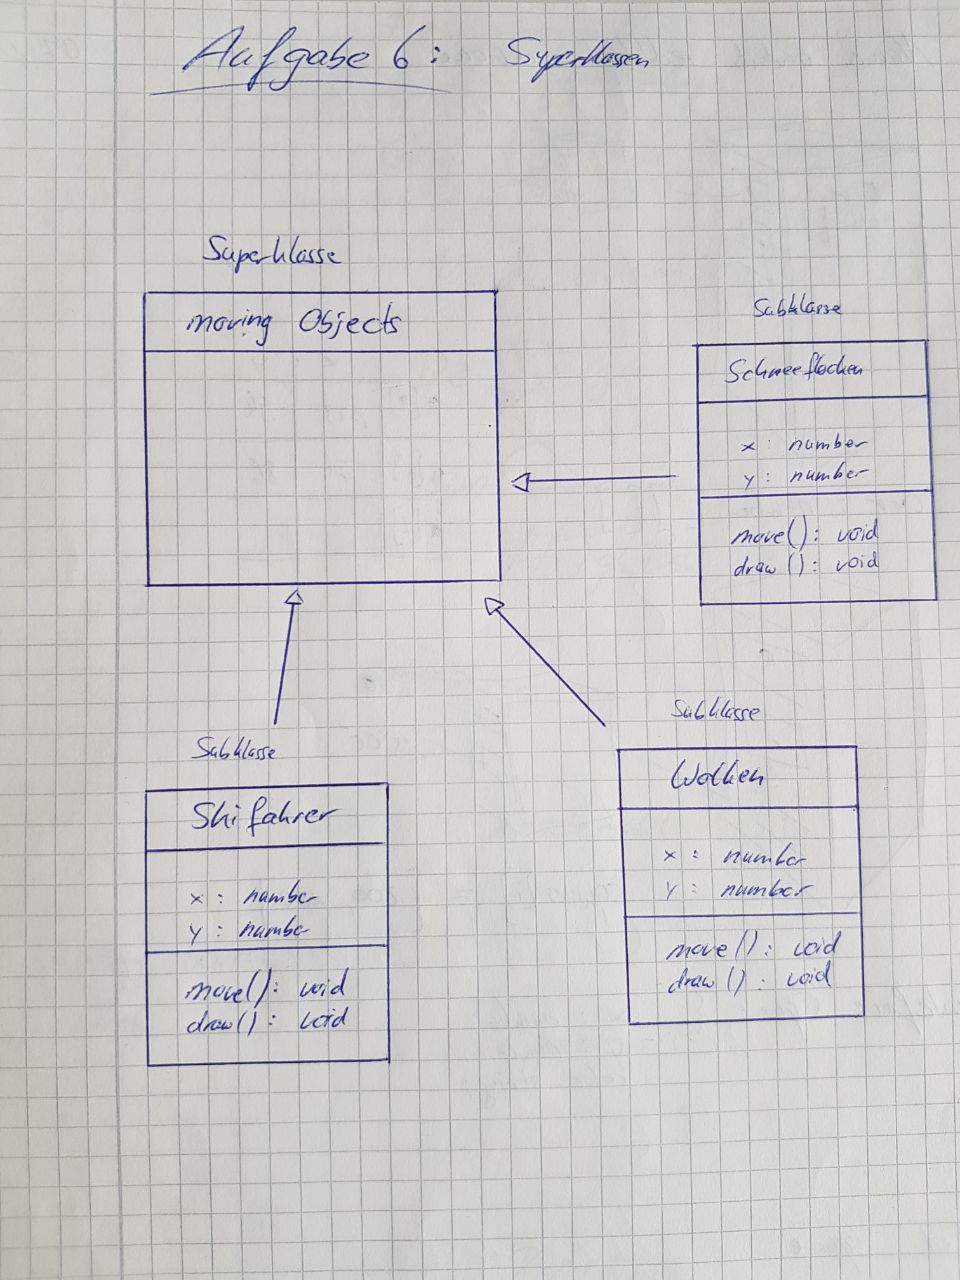 Aufgabe 6: Superklassen
Superklasse
moving Objects
Subklasse
Schneeflocken
x: number
y: number
move(): void
draw(): void
Subklasse
Skifahrer
x: number
y: number
move(): void
draw(): void
Subklasse
Wolken
x: number
y: number
move(): void
draw(): void